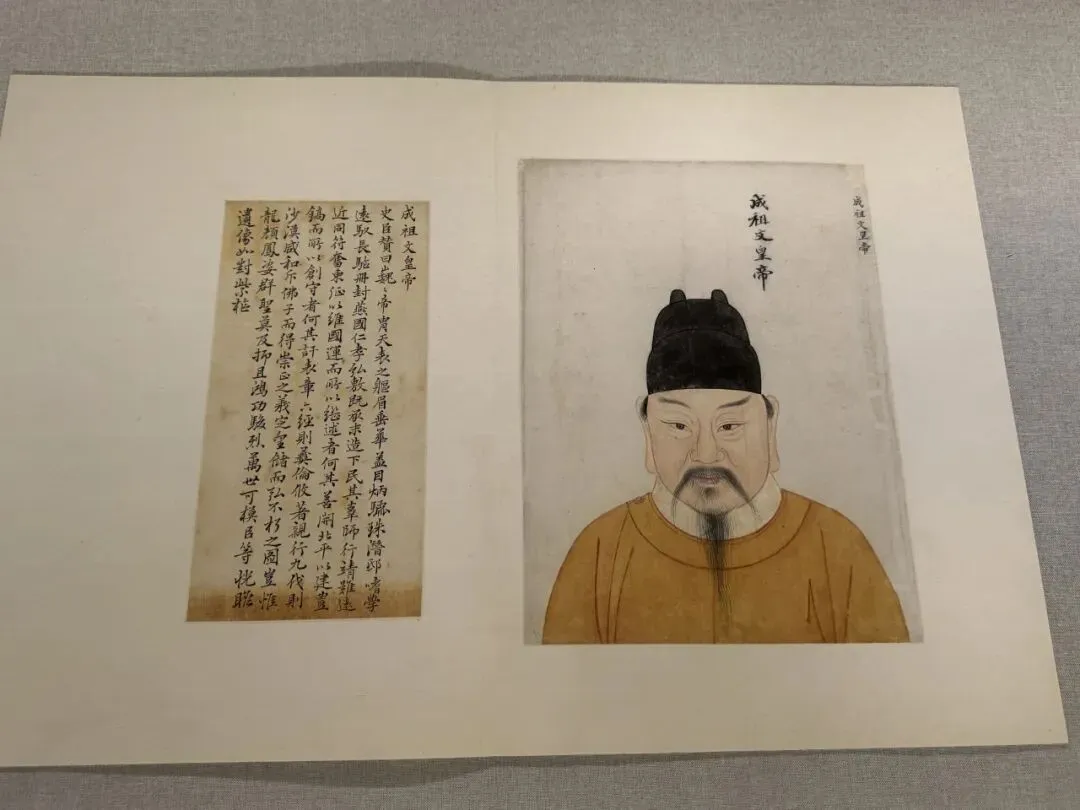 成祖文皇帝
成祖文皇帝
成祖文皇帝
史臣贊曰巍〻帝胄天表之軀眉垂華蓋目炳驪珠潛邸嗜學
遠馭長駘冊封燕國仁孝弘敷既承末造下民其辜師行靖難遠
近同符奮東征以維國運而所以繼述者何其善開北平以建豊
鎬而所以創守者何其訏表章六經則彝倫攸著親行九伐則
沙漠咸和斥佛子而得崇正之義定聖儲而弘不朽之圖豈惟
龍顏鳳姿群聖莫及抑且鴻功駿烈萬世可模臣等恍瞻
遺像如對紫樞